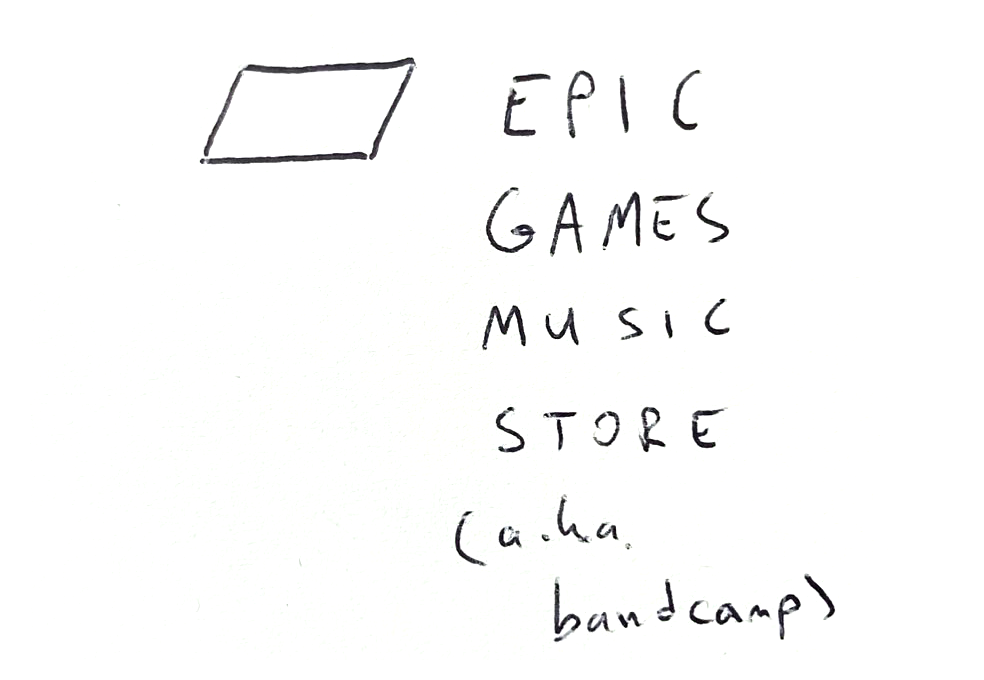 EPIC
GAMES
MUSIC
STORE
(a.ka.
bandcamp)